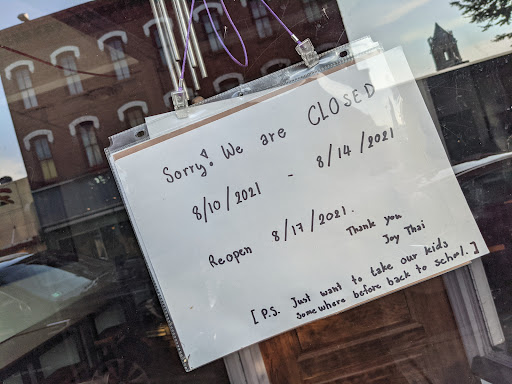 Sorry! We are CLOSED
8/10/2021 - 8/14/2021
Reopen 8/17/2021.
Thank you
Joy Thai
[P.S. Just want to take our kids
somewhere before back to school.]